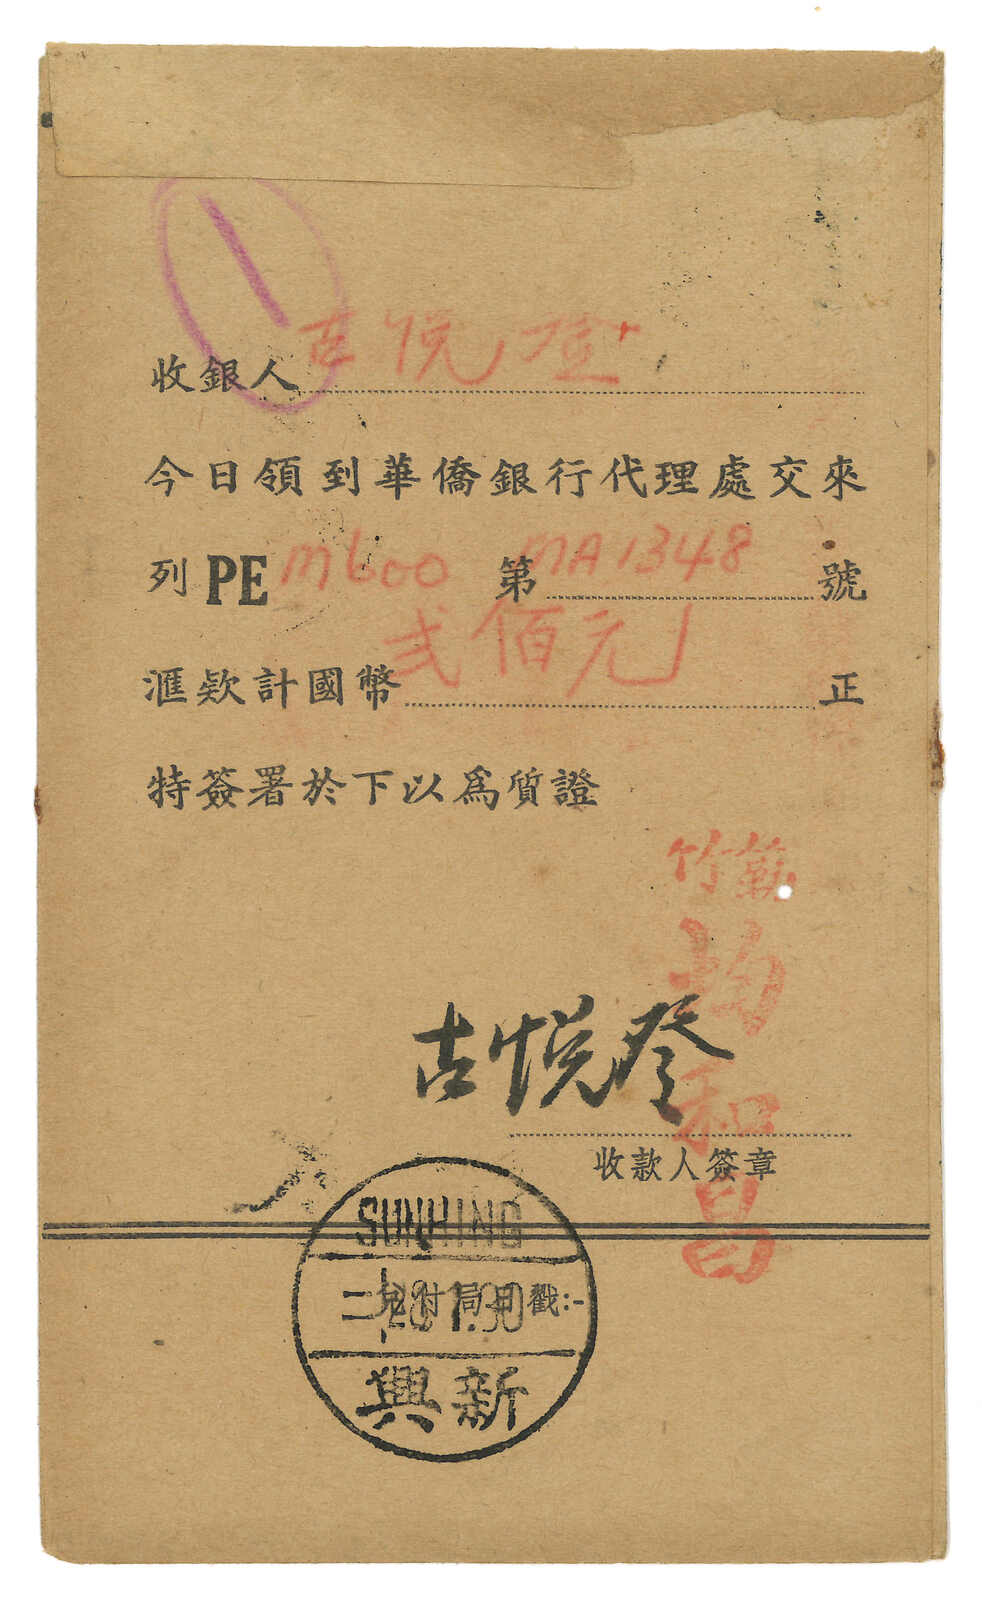 收銀人 古悅登
今日領到華僑銀行代理處交來
列PE m600 第 MA1348 號
滙欵計國幣 弍佰元 正
特簽署於下以為質證
竹
均和昌
古悅登
收款人簽章
SUNHING
兌付局用戳:-
興新